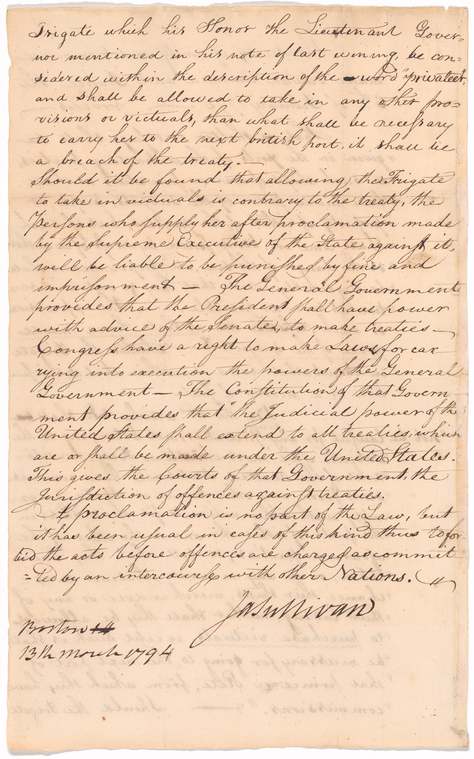 Frigate which his Honor the Lieutenant Gover-
nor mentioned in his note of last evening, be con-
sidered within the description of the word "privateer,
and shall be allowed to take in any other pro-
visions or victuals, than what shall be necessary
to carry her to the next british port, it shall be
a breach of the treaty.—
Should it be found that allowing the Frigate
to take in victuals is contrary to the treaty, the
Persons who supply her after proclamation made
by the supreme Executive of the State against it,
will be liable to be punished by fine and
imprisonment — The General Government
provides that the President shall have power
with advice of the Senate, to make treaties—
Congress have a right to make Laws for car
rying into execution the powers of the General
Government — The Constitution of that Govern
ment provides that the Judicial power of the
United States shall extend to all treaties, which
are or shall be made under the United States.
This gives the Courts of that Government, the
jurisdiction of offences against treaties.
A proclamation is no part of the Law, but
it has been usual in cases of this kind thus to for
bid the acts before offences are charged as commit
=ted by an intercourse with other Nations.
Ja Sullivan
Boston
13th March 1794